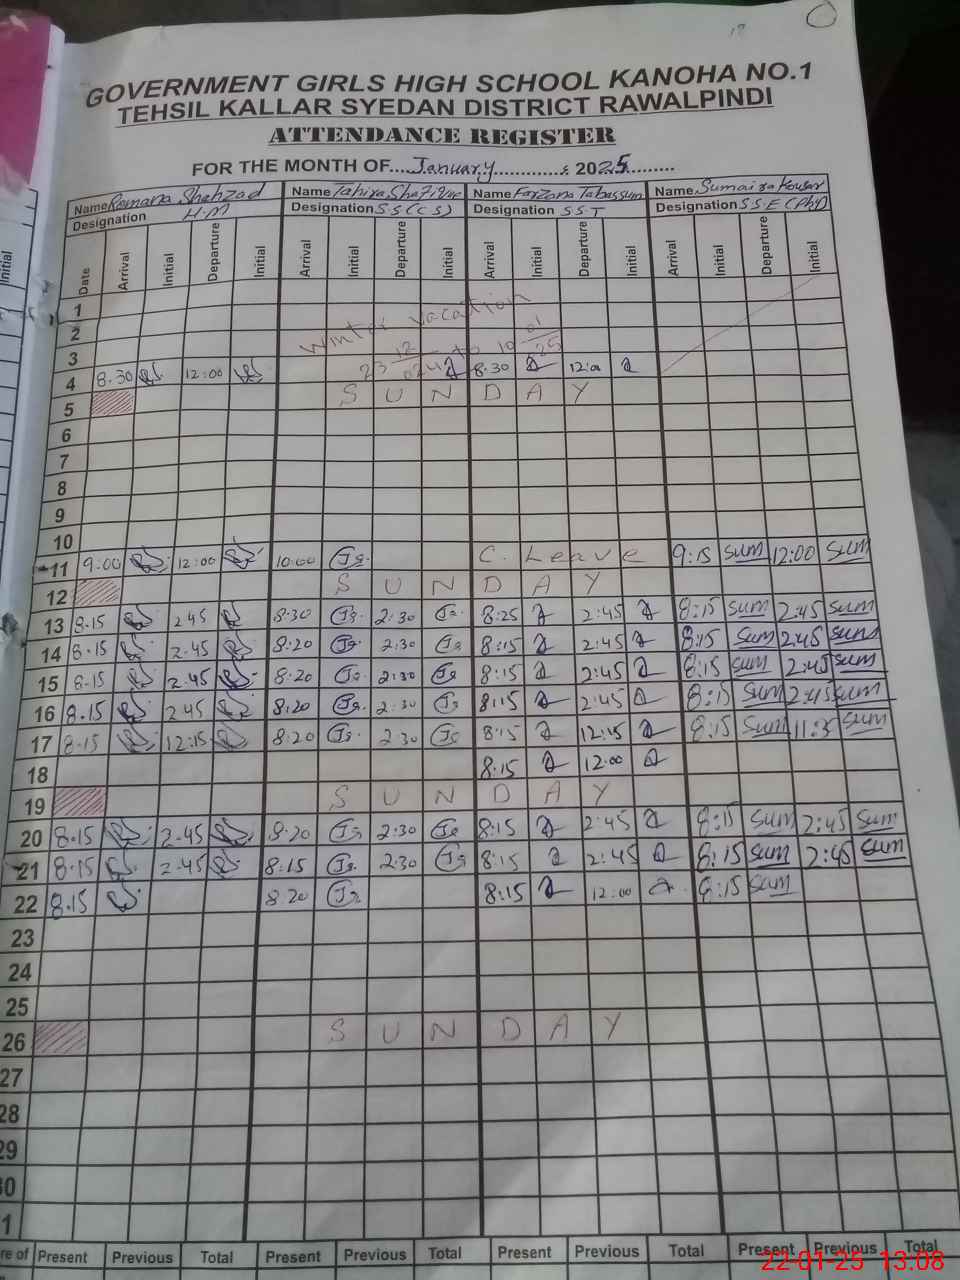 GOVERNMENT GIRLS HIGH SCHOOL KANOHA NO.1
TEHSIL KALLAR SYEDAN DISTRICT RAWALPINDI
ATTENDANCE REGISTER
FOR THE MONTH OF....January.............: 2025.........
Name Shahzad Name Tahira Name Farzana Tabassum Name Sumaira Kousar
Designation H.M Designation S.S(CS) Designation S.S.T Designation S.S.E(Phy)
Date Arrival Initial Departure Initial Arrival Initial Departure Initial Arrival Initial Departure Initial Arrival Initial Departure Initial
1
2 Winter vacation
3 23 12 024 to 10 01 25
4 8.30 12:00 8.30
5 S U N D A Y
6
7
8
9
10
11 9:00 12:00 10:00 C. Leave 9:15 sum 12:00 sum
12 S U N D A Y
13 8.15 2.45 8:30 2:30 8:25 2:45 8:15 sum 2:45 sum
14 8.15 2.45 8:20 2:30 8:15 2:45 8:15 sum 2:45 sum
15 8.15 2.45 8:20 2:30 8:15 2:45 8:15 sum 2:45 sum
16 8.15 2.45 8:20 2:30 8:15 2:45 8:15 sum 2:45 sum
17 8.15 12:15 8:20 2:30 8:15 12:15 8:15 sum sum
18 8.15 12:00
19 S U N D A Y
20 8.15 2.45 8:20 2:30 8:15 2:45 8:15 sum 2:45 sum
21 8.15 2.45 8:15 2:30 8:15 2:45 8:15 sum 2:45 sum
22 8.15 8:20 8:15 12:00 8:15 sum
23
24
25
26 S U N D A Y
27
28
29
30
Present Previous Total Present Previous Total Present Previous Total Present Previous Total
22-01-25 13:08